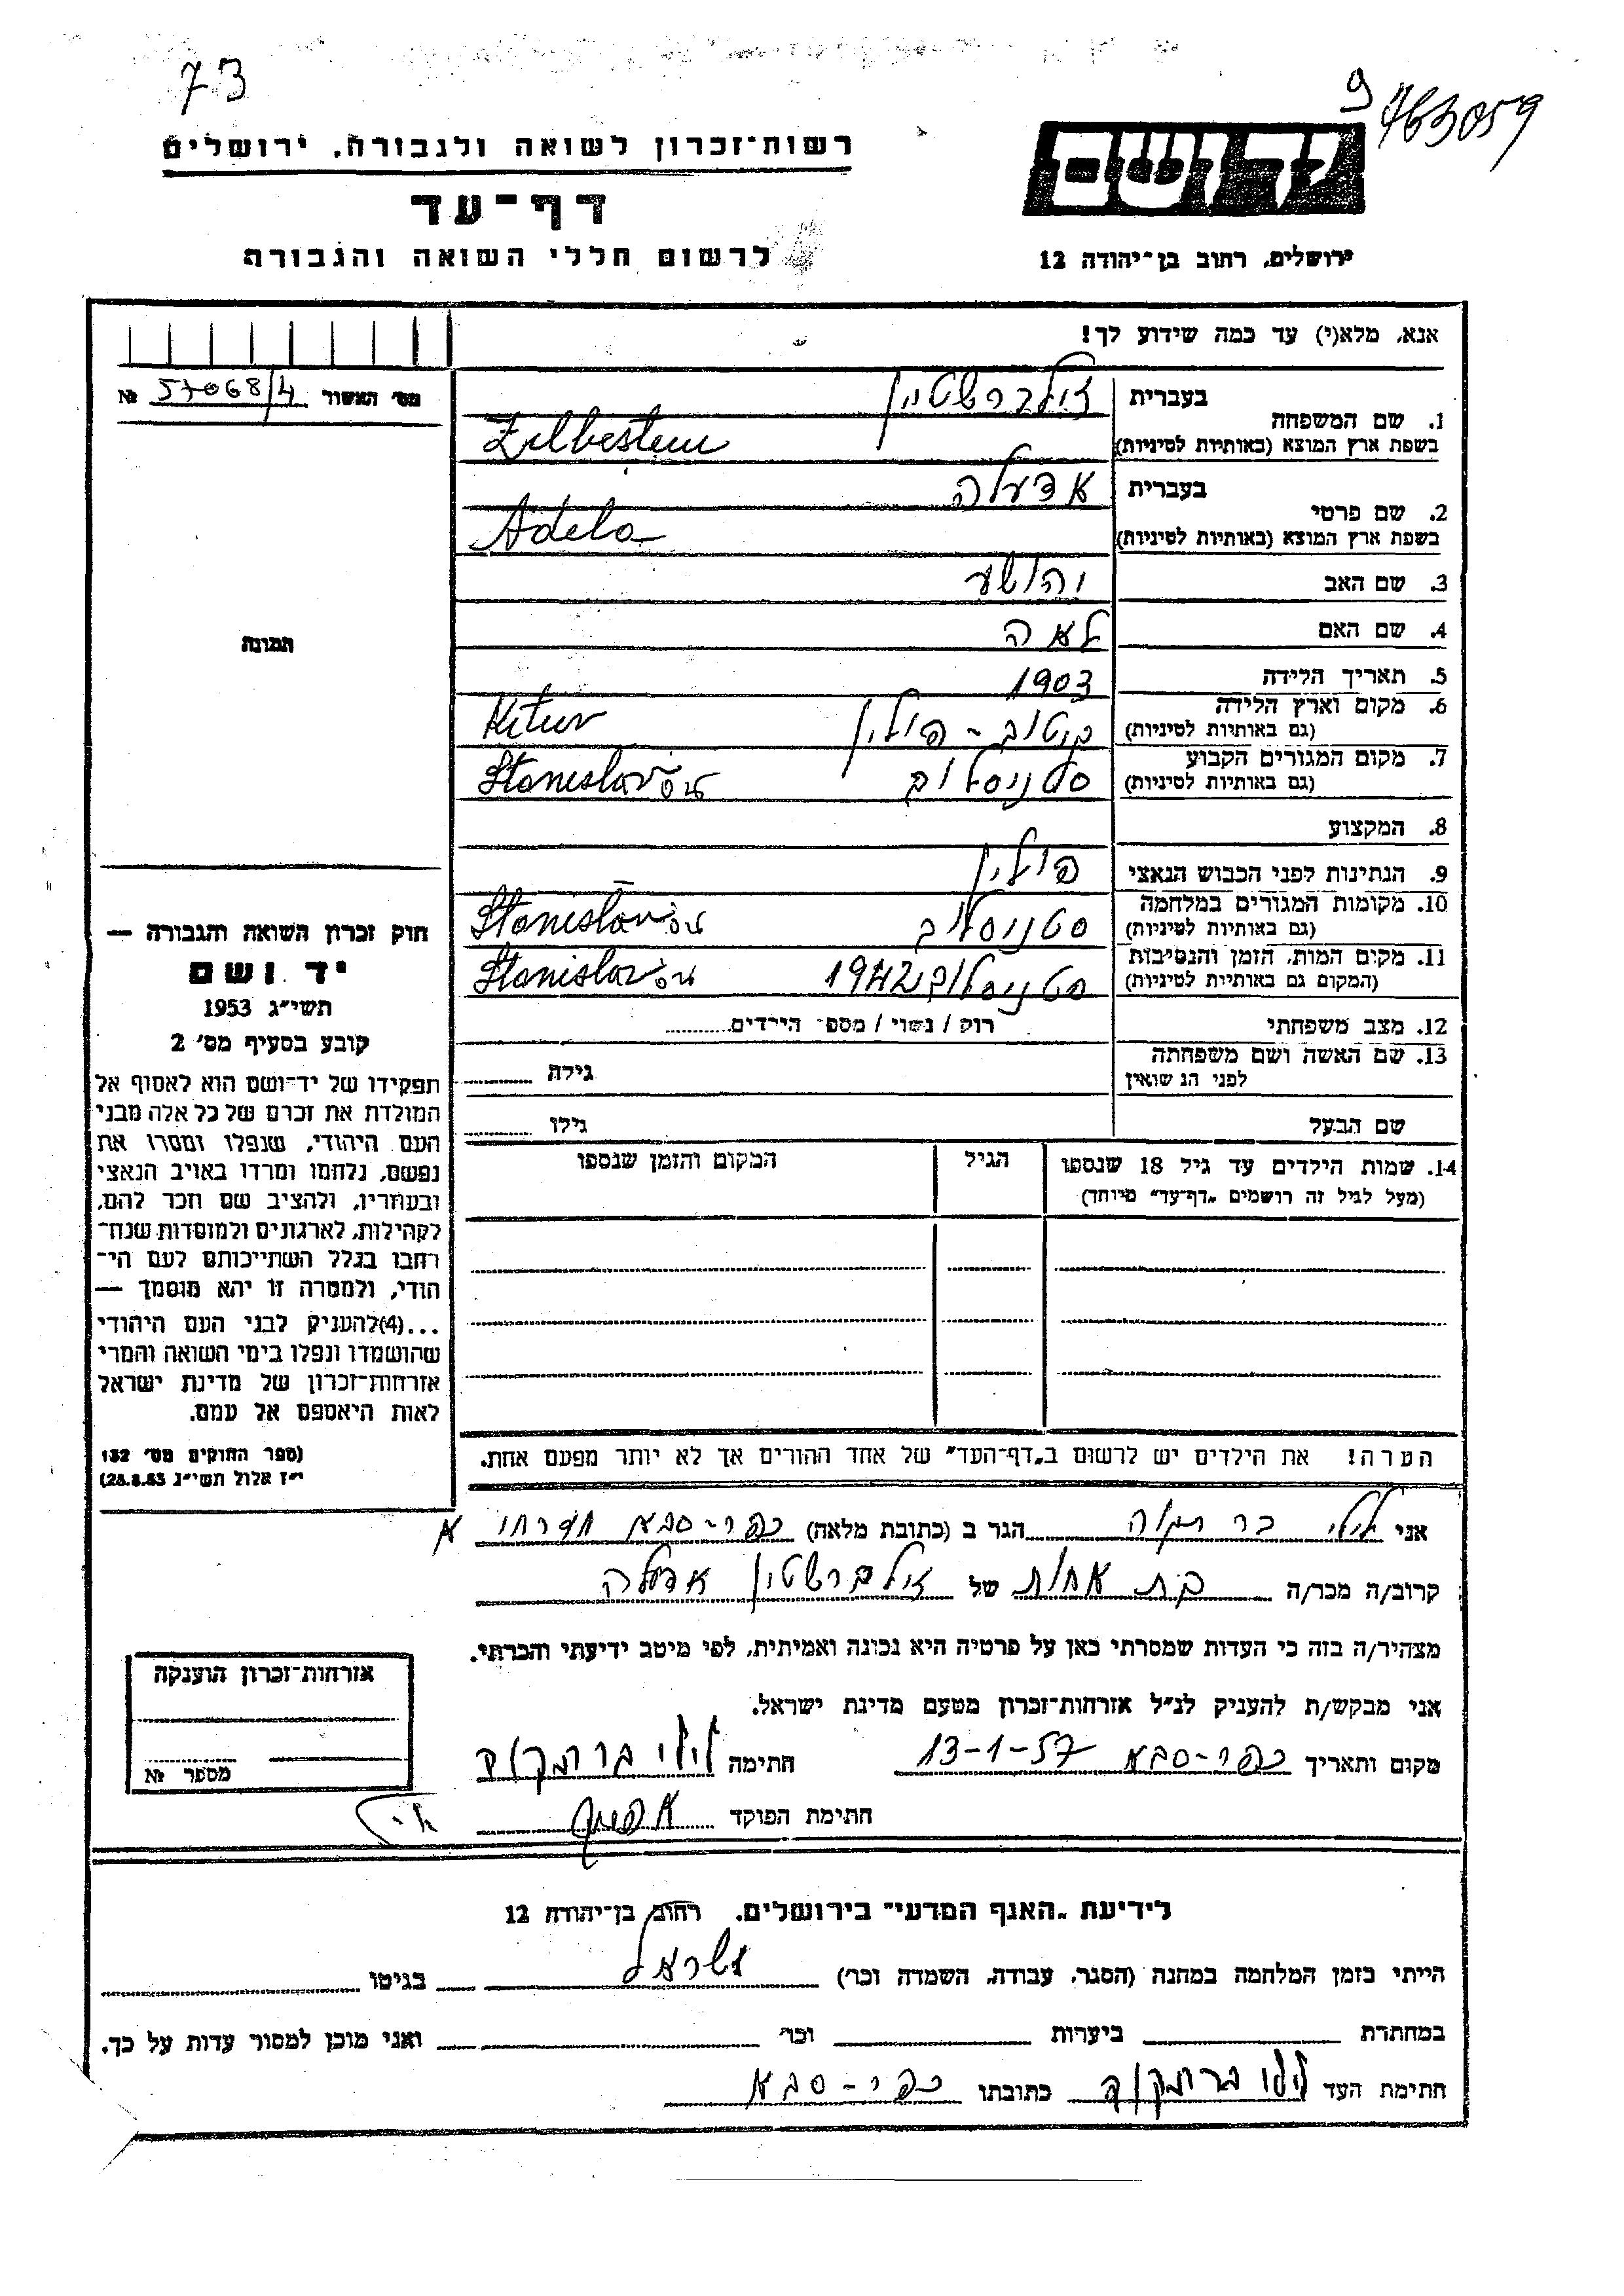 73
9
463059
רשות־זכרון לשואה ולגבורה, ירושלים
דף־עד
לרשום חללי השואה והגבורה
יד ושם
ירושלים, רחוב בן־יהודה 12
אנא, מלא(י) עד כמה שידוע לך!
מס׳ האשור 57068/4 №
תמונה
1. שם המשפחה
בעברית זילברשטיין
בשפת ארץ המוצא (באותיות לטיניות) Zilbestein
2. שם פרטי
בעברית אדעלה
בשפת ארץ המוצא (באותיות לטיניות) Adela
3. שם האב יהושע
4. שם האם לאה
5. תאריך הלידה 1903
6. מקום וארץ הלידה קיטוב - פולין Kituv
(גם באותיות לטיניות)
7. מקום המגורים הקבוע סטניסלוב Stanislav
(גם באותיות לטיניות)
8. המקצוע
9. הנתינות לפני הכבוש הנאצי פולין
10. מקומות המגורים במלחמה סטניסלוב Stanislav
(גם באותיות לטיניות)
11. מקום המות, הזמן והנסיבות סטניסלוב 1942 Stanislav
(המקום גם באותיות לטיניות)
12. מצב משפחתי רוק / נשוי / מספר הילדים
13. שם האשה ושם משפחתה
לפני הנשואין גילה
שם הבעל גילו
14. שמות הילדים עד גיל 18 שנספו
(מעל לגיל זה רושמים „דף־עד״ מיוחד)
הגיל
המקום והזמן שנספו
חוק זכרון השואה והגבורה —
יד ושם
תשי״ג 1953
קובע בסעיף מס׳ 2
תפקידו של יד־ושם הוא לאסוף אל
המולדת את זכרם של כל אלה מבני
העם היהודי, שנפלו ומסרו את
נפשם, נלחמו ומרדו באויב הנאצי
ובעוזריו, ולהציב שם וזכר להם,
לקהילות, לארגונים ולמוסדות שנח־
רבו בגלל השתייכותם לעם הי־
הודי, ולמטרה זו יהא מוסמך —
...(4)להעניק לבני העם היהודי
שהושמדו ונפלו בימי השואה והמרי
אזרחות־זכרון של מדינת ישראל
לאות היאספם אל עמם.
(ספר החוקים מס׳ 132
י״ז אלול תשי״ג 28.8.53)
הערה! את הילדים יש לרשום ב„דף־העד״ של אחד ההורים אך לא יותר מפעם אחת.
אני לילי הגר ב (כתובת מלאה) כפר-סבא
קרוב/ה מכר/ה בת אחות של זילברשטיין אדעלה
מצהיר/ה בזה כי העדות שמסרתי כאן על פרטיה היא נכונה ואמיתית, לפי מיטב ידיעתי והכרתי.
אני מבקש/ת להעניק לנ״ל אזרחות־זכרון מטעם מדינת ישראל.
מקום ותאריך כפר-סבא 13-1-57 חתימה לילי
חתימת הפוקד
אזרחות־זכרון הוענקה
מספר №
לידיעת „האגף המדעי״ בירושלים, רחוב בן־יהודה 12
הייתי בזמן המלחמה במחנה (הסגר, עבודה, השמדה וכו׳) ישראל בגיטו
במחתרת ביערות וכו׳ ואני מוכן למסור עדות על כך.
חתימת העד לילי כתובתו כפר-סבא